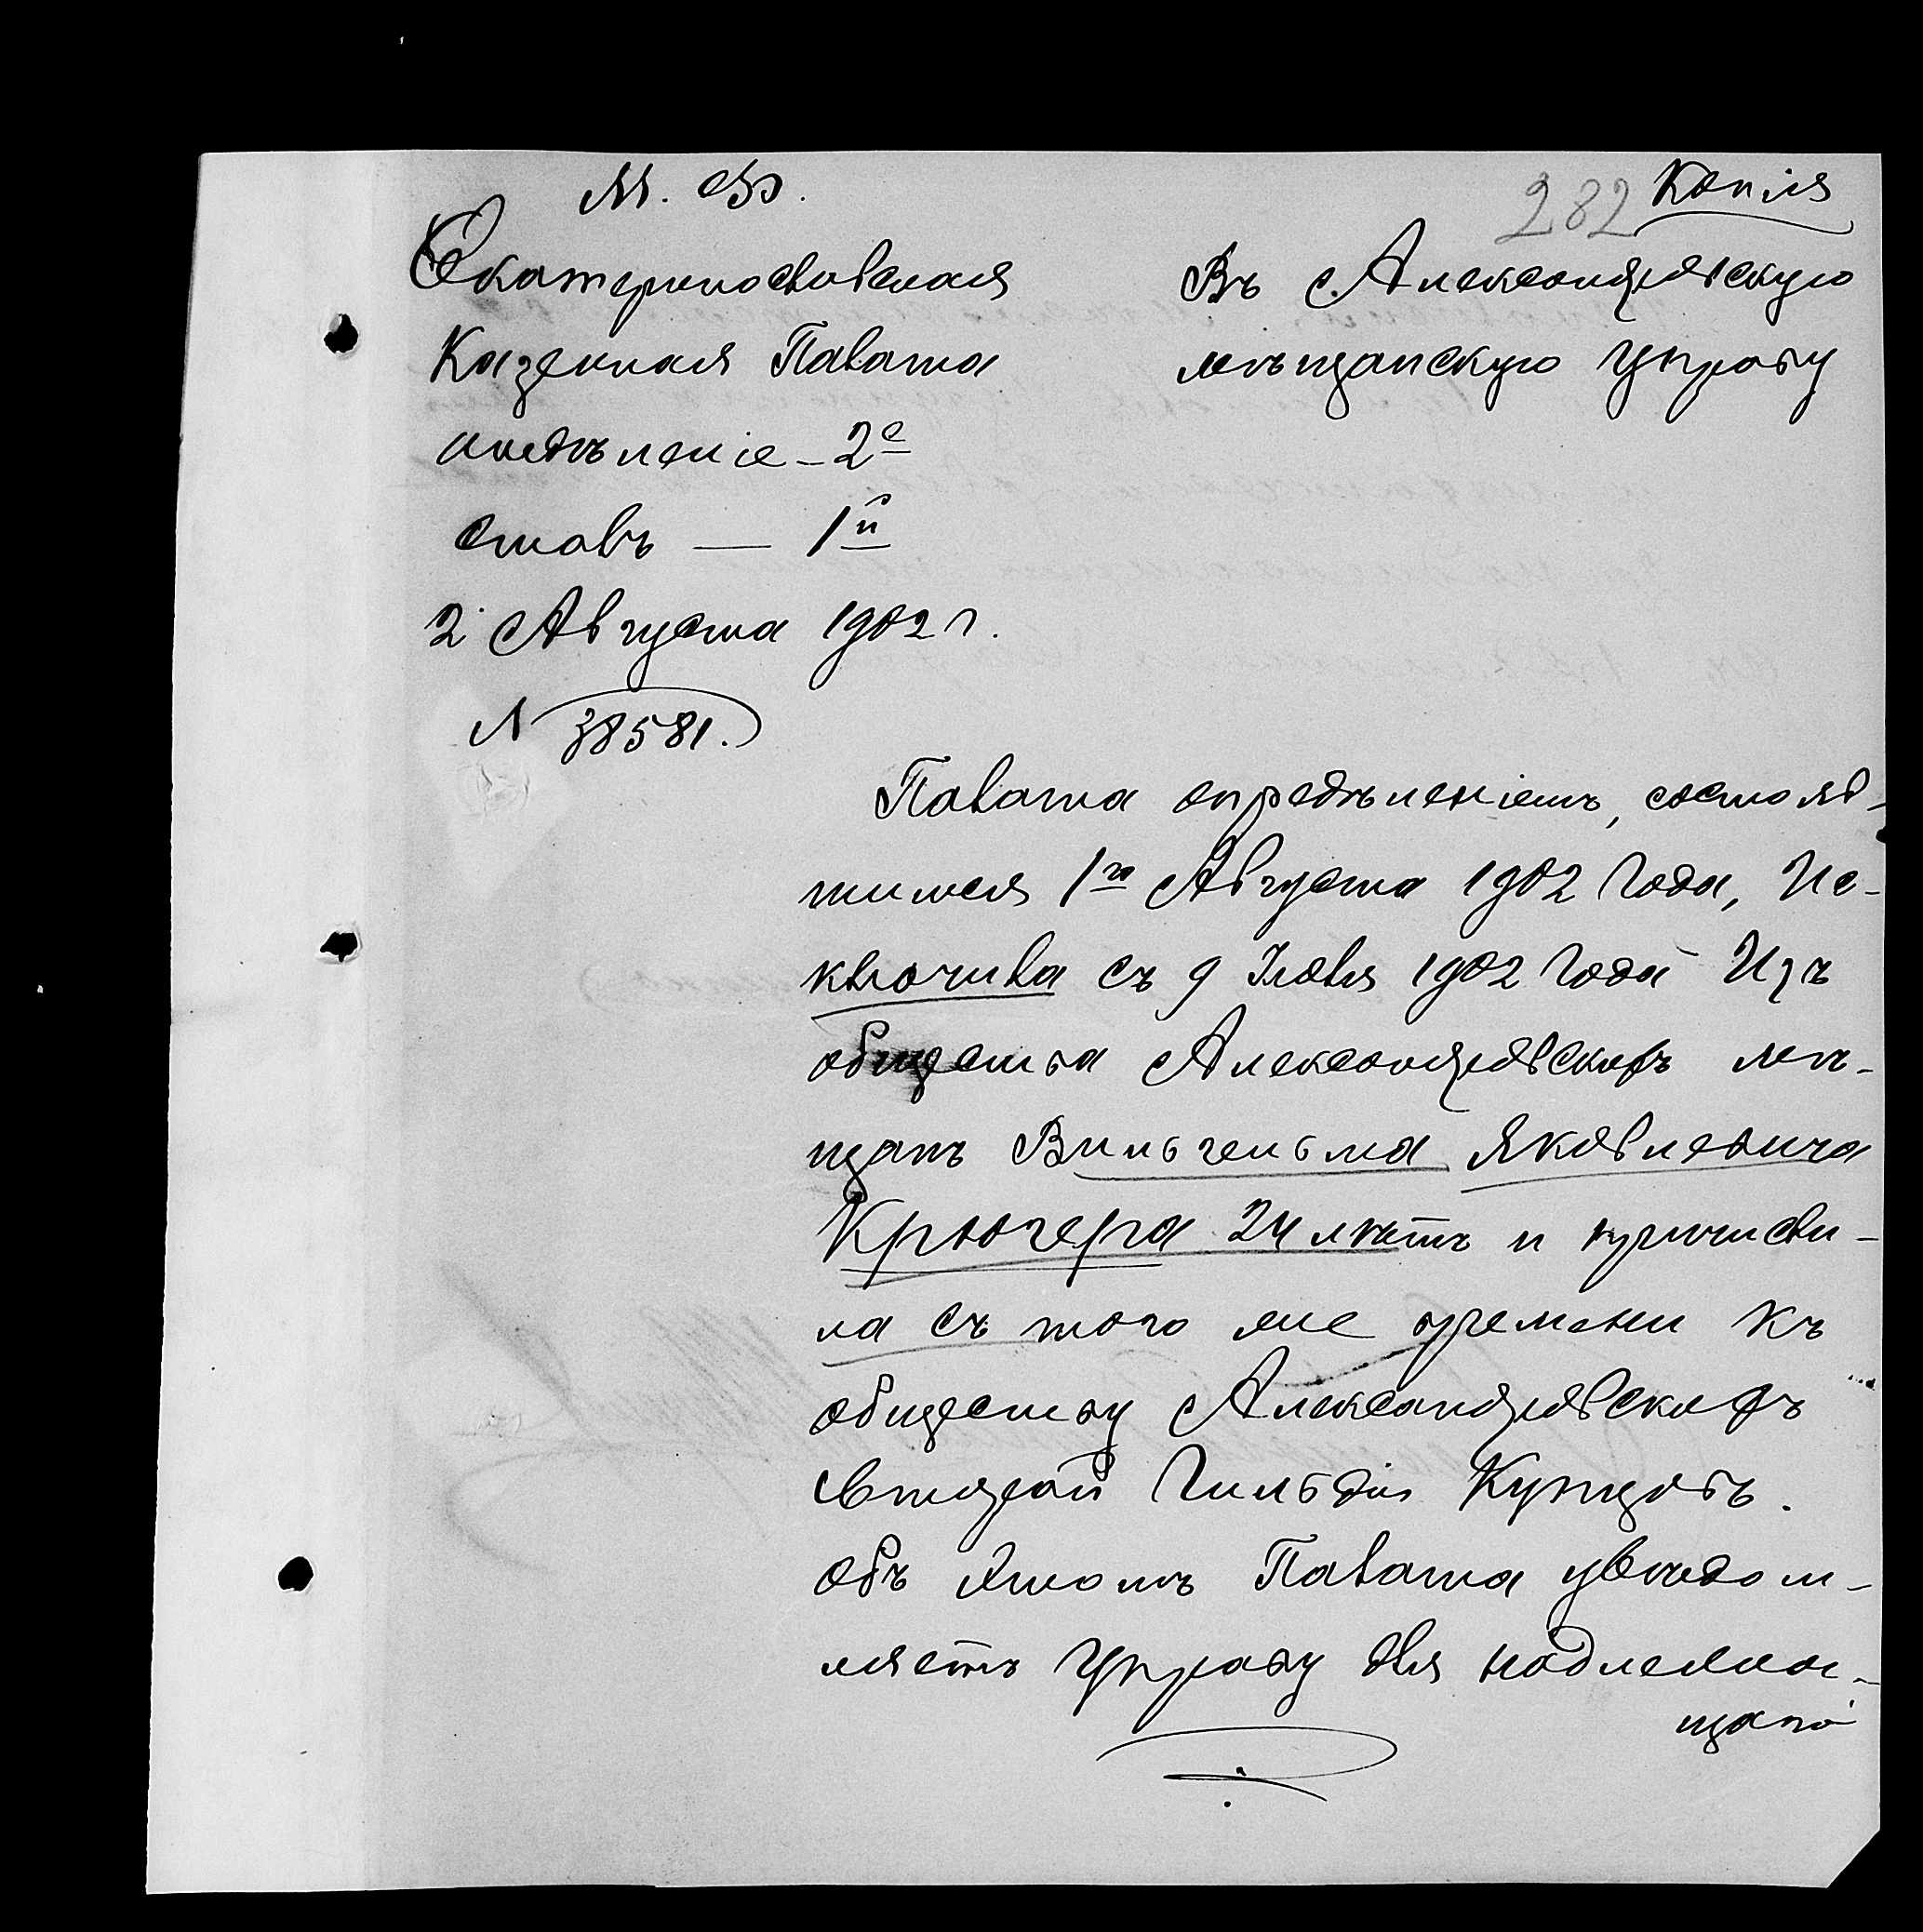 М. Ф.
282 Копія
Екатеринославская
Казенная Палата
отдѣленіе - 2е
столъ — 1й
2 Августа 1902 г.
№ 38581.
Въ Александровскую
мѣщанскую Управу
Палата опредѣленіемъ, состояв-
шимся 1го Августа 1902 года, Ис-
ключила съ 9 Іюля 1902 года Изъ
общества Александровскихъ мѣ-
щанъ Вильгельма Яковлевича
Крюгера 24 лѣтъ и причисли-
ла съ того же времени къ
обществу Александровскихъ
второй Гильдіи Купцовъ.
Объ этомъ Палата увѣдом-
ляетъ Управу для надлежа-
щаго